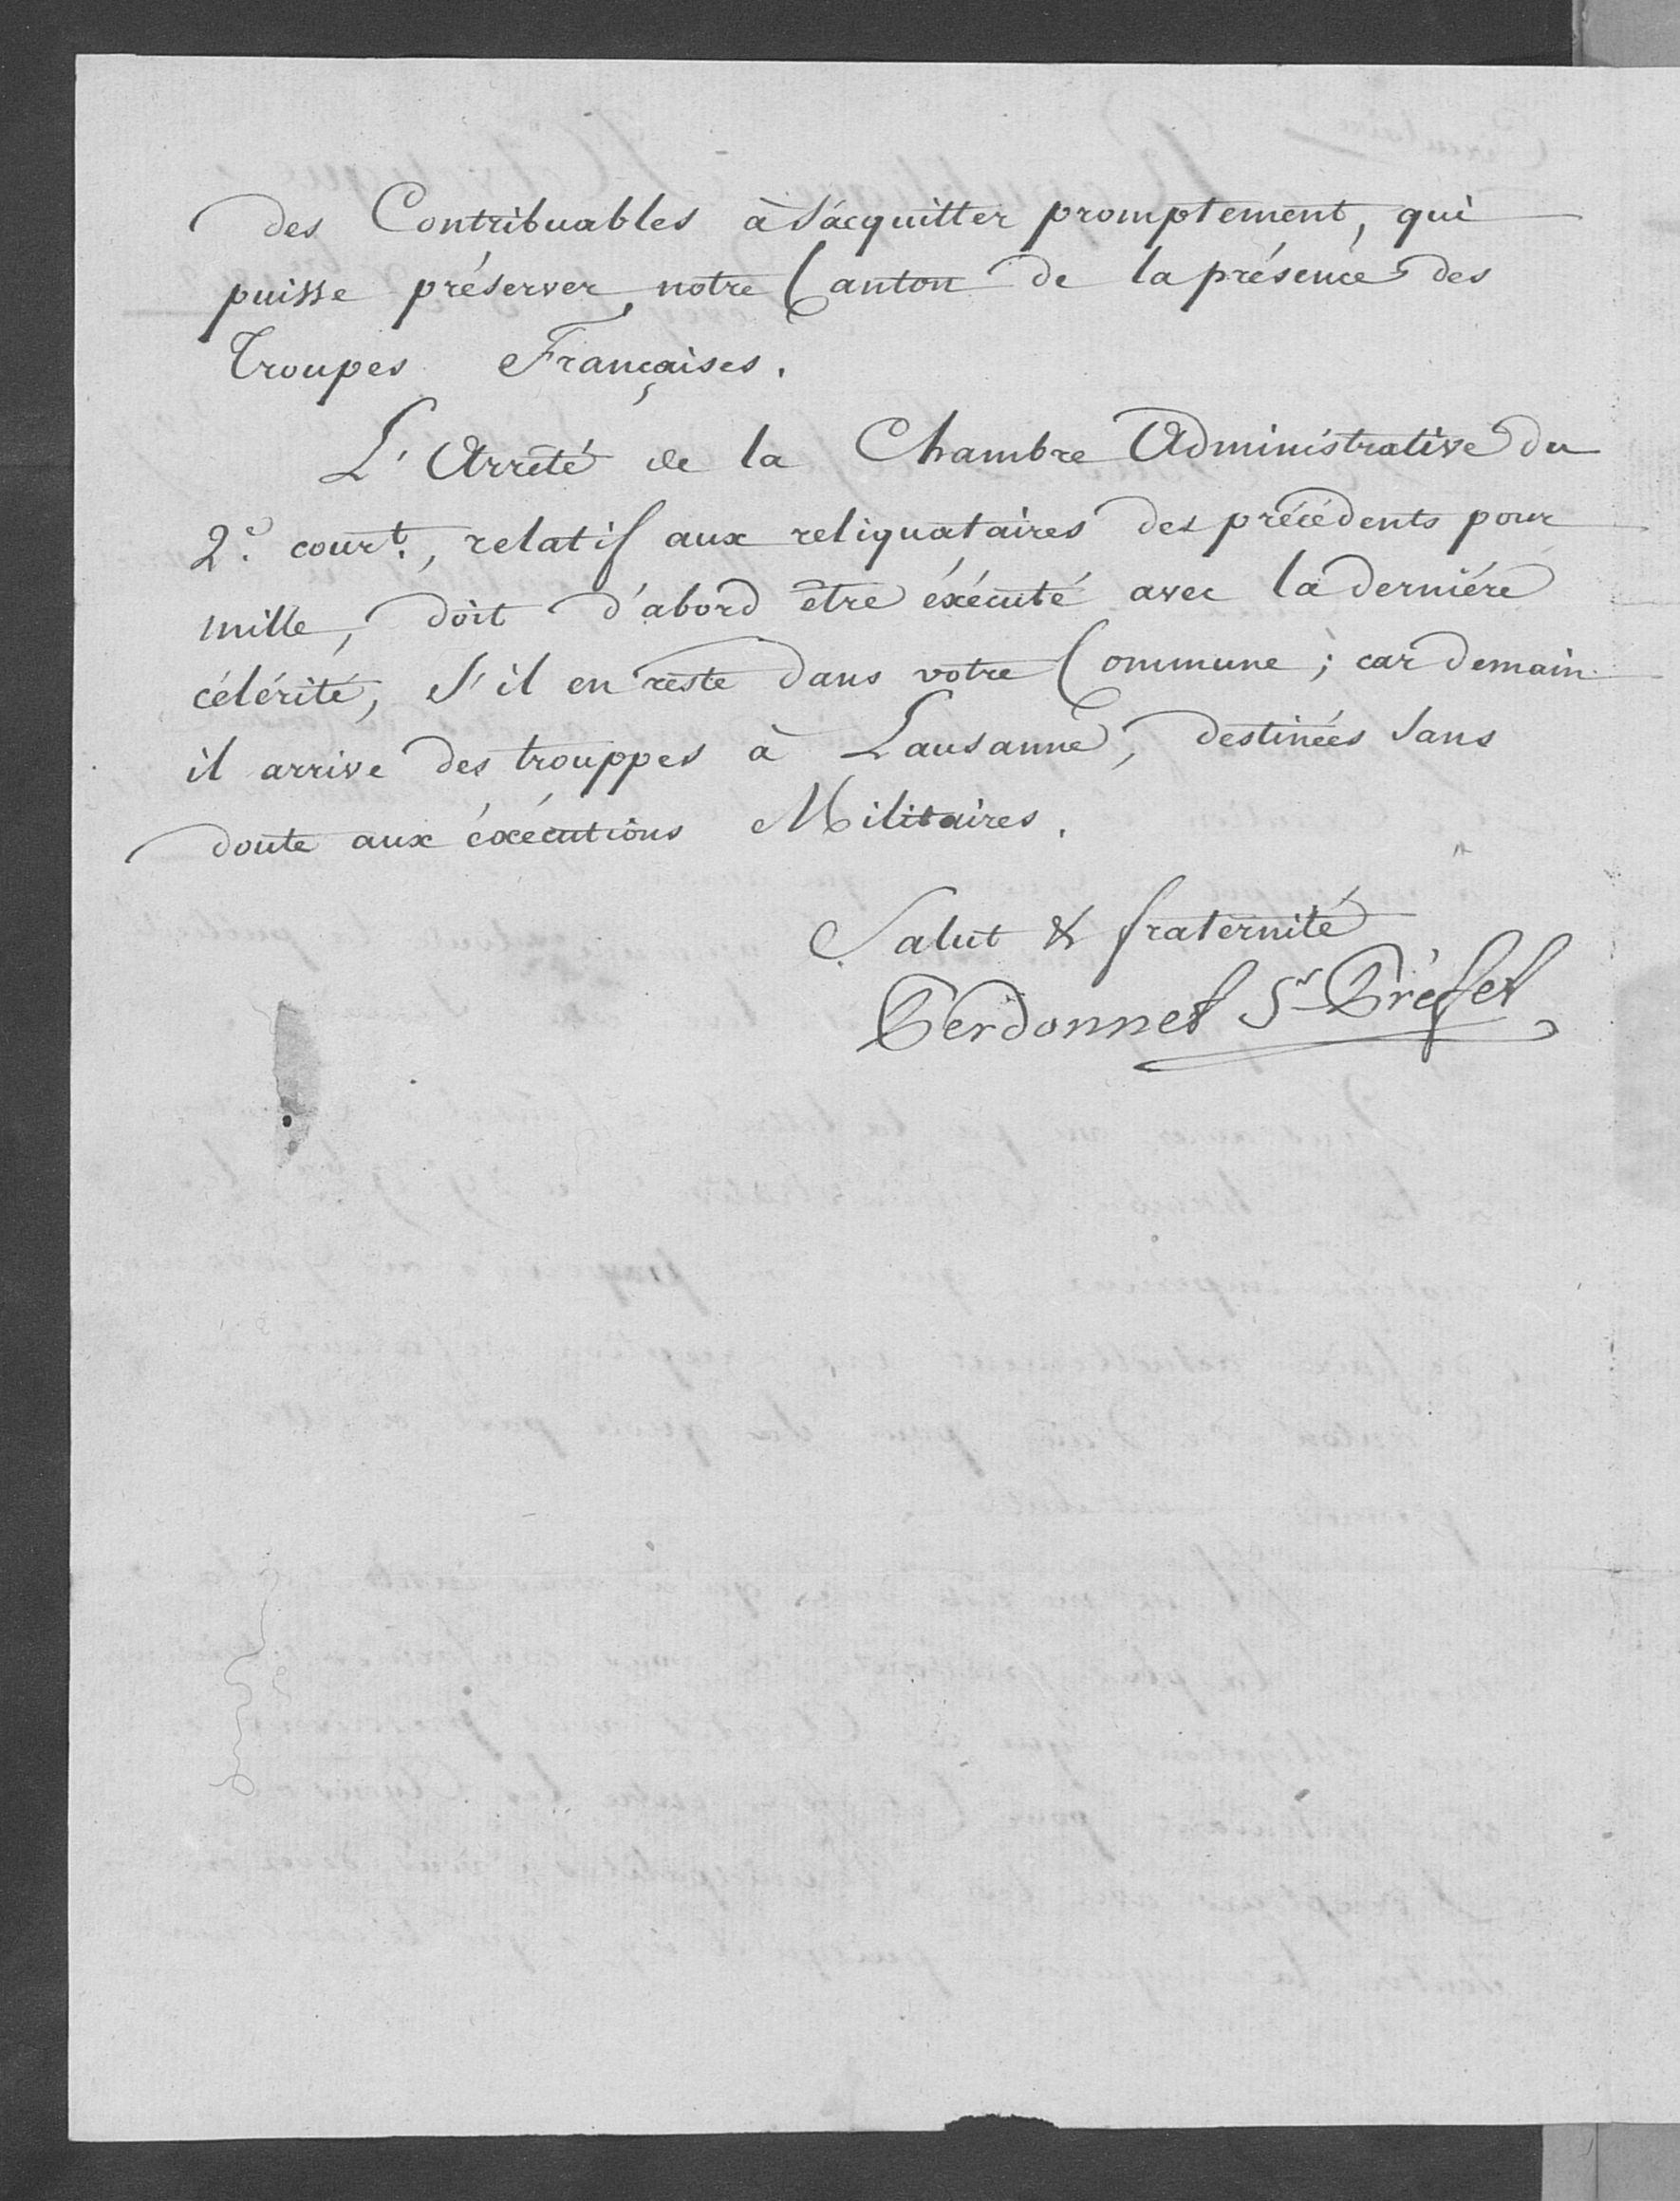 des Contribuables à s'acquitter promptement, qui
puisse préserver notre Canton de la présence des
Troupes Françaises.
L'Arrêté de la Chambre Administrative du
2.e cour.t, relatif aux reliquataires des précédents pour
mille, doit d'abord être éxécuté avec la derniére
célérité, S'il en reste dans votre Commune; car demain
il arrive des trouppes à Lausanne, destinées sans
doute aux éxécutions Militaires.
Salut & fraternité
Perdonnet Sr Préfet